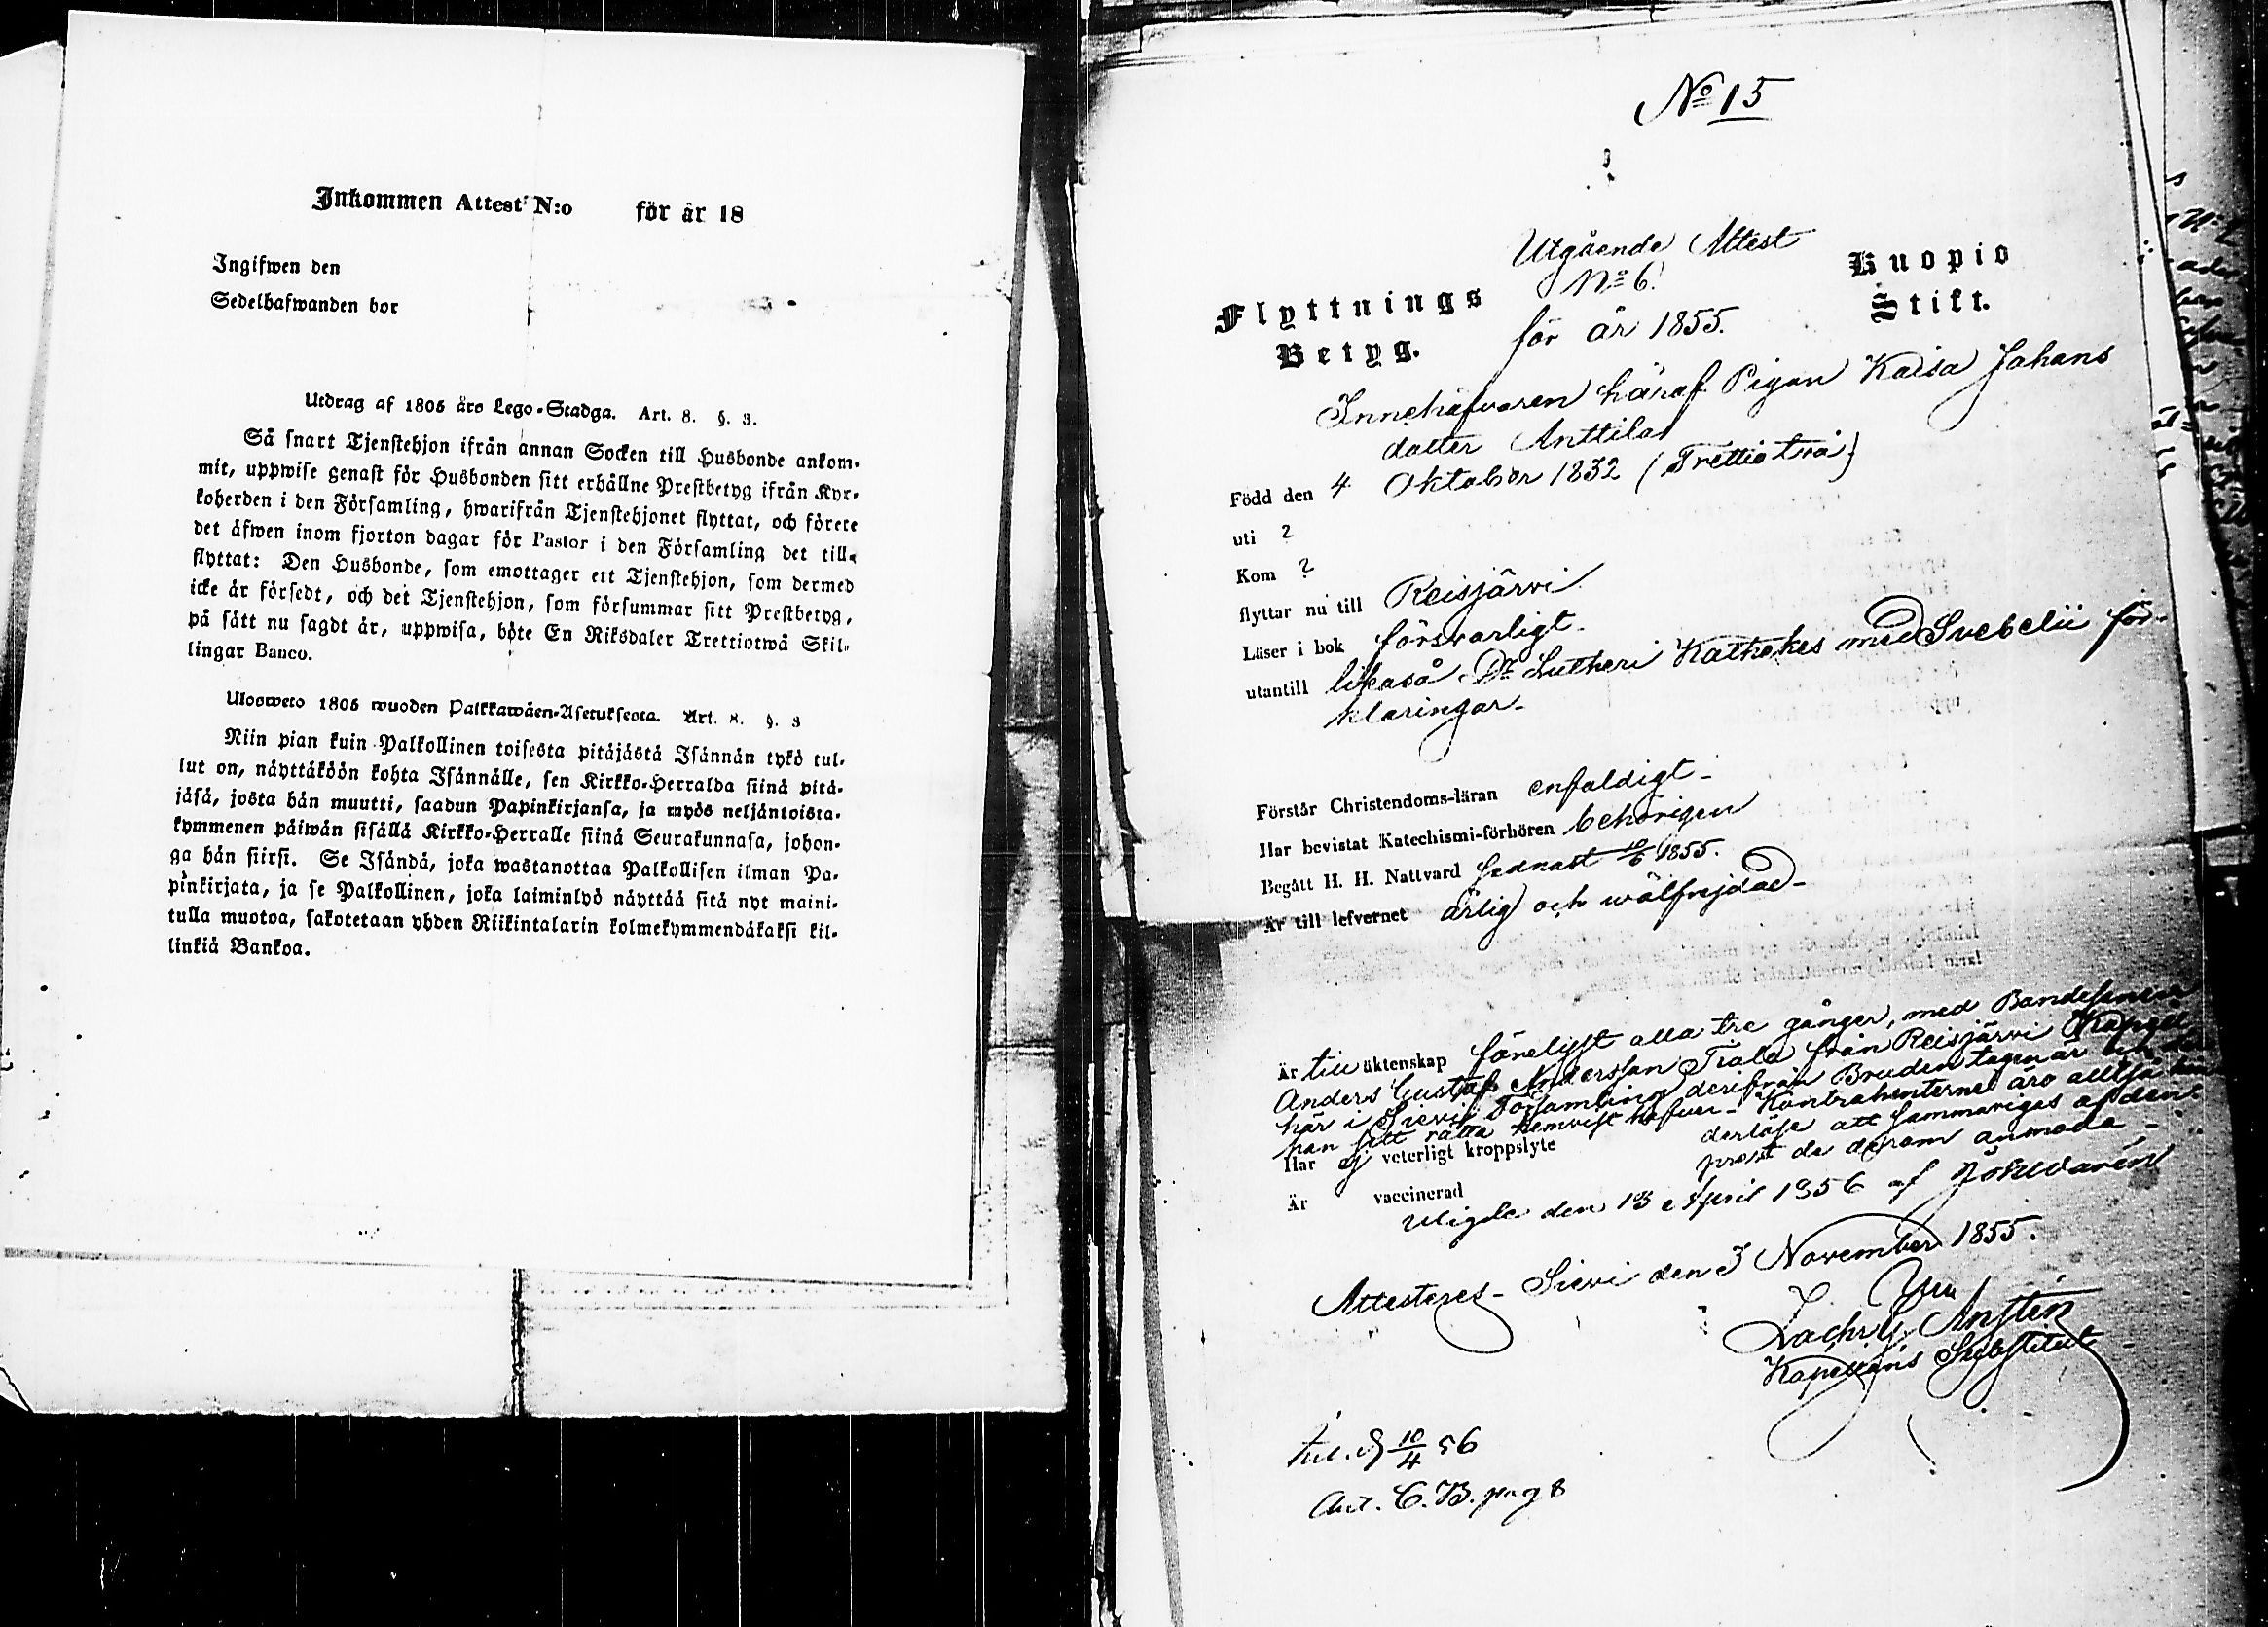 Inkommen Attest N:o för år 18
Ingifwen den
Sedelhafwanden bor
Utdrag af 1805 års Lego-Stadga. Art. 8. §. 3.
Så snart Tjenstehjon ifrån annan Socken till Husbonde ankom-
mit, uppwise genast för Husbonden sitt erhållne Prestbetyg ifrån Kyr-
koherden i den Församling, hwarifrån Tjenstehjonet flyttat, och förete
det äfwen inom fjorton dagar för Pastor i den Församling det till-
flyttat: Den Husbonde, som emottager ett Tjenstehjon, som dermed
icke är försedt, och det Tjenstehjon, som försummar sitt Prestbetyg,
på sätt nu sagdt är, uppwisa, böte En Riksdaler Trettiotwå Skil-
lingar Banco.
Uloswеto 1805 wuoden Palkkawäen-Asetuksesta. Art. 8. §. 3
Niin pian kuin Palkollinen toisesta pitäjästä Isännän tykö tul-
lut on, näyttäköön kohta Isännälle, sen Kirkko-Herralda siinä pitä-
jäsä, josta hän muutti, saadun Papinkirjansa, ja myös neljäntoista-
kymmenen päiwän sisällä Kirkko-Herralle siinä Seurakunnasa, johon-
ga hän siirsi. Se Isändä, joka wastanottaa Palkollisen ilman Pa-
pinkirjata, ja se Palkollinen, joka laiminlyö näyttää sitä nyt maini-
tulla muotoa, sakotetaan yhden Riikintalarin kolmekymmendäkaksi kil-
linkiä Bankoa.
No 15
Utgående Attest
No 6.
för år 1855.
Flyttnings
Betyg.
Kuopio
Stift.
Innehafvaren häraf Pigan Kaisa Johans
dotter Anttila
Född den 4 Oktober 1832 (Trettio två)
uti ?
Kom ?
flyttar nu till Reisjärvi
Läser i bok försvarligt
utantill likaså Dr Lutheri Kathekes med Svebelii för-
klaringar
Förstår Christendoms-läran enfaldigt
Har bevistat Katechismi-förhören behörigen
Begått H. H. Nattvard sednast 1855.
Är till lefvernet ärlig och wälfrejdad
Är till äktenskap alla tre gånger, med Bondesonen
Anders Gustaf Andersson Tiala från Reisjärvi Kapell
här i Sievi Församling derifrån Bruden tagen är och der
han sitt rätta hemvist hafver - Kontrahenterne äro alltså hin
derlösa att sammanvigas af den
prest de derom anmoda -
Har ej veterligt kroppslyte
Är vaccinerad
Vigde den 13 April 1856 af
Attesteres - Sievi den 3 November 1855.
Kapellans Substitut
10/4 56
C. B. pag 8